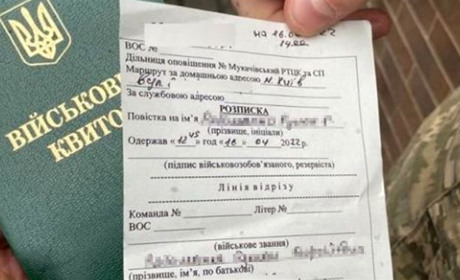 ВІЙСЬКОВ
КВИТО
на 16.0
1400
ВОС №
Дільниця оповіщення № Мукачівський РТЦК та СП
Маршрут за домашньою адресою м. Київ
За службовою адресою
РОЗПИСКА
Повістка на ім'я
(прізвище, ініціали)
Одержав «12 45 год «16» 04 2022 г.
(підпис військовозобов'язаного, резервіста)
Лінія відрізу
Команда № Літер №
ВОС
(військове звання)
(прізвище, ім'я, по батькові)